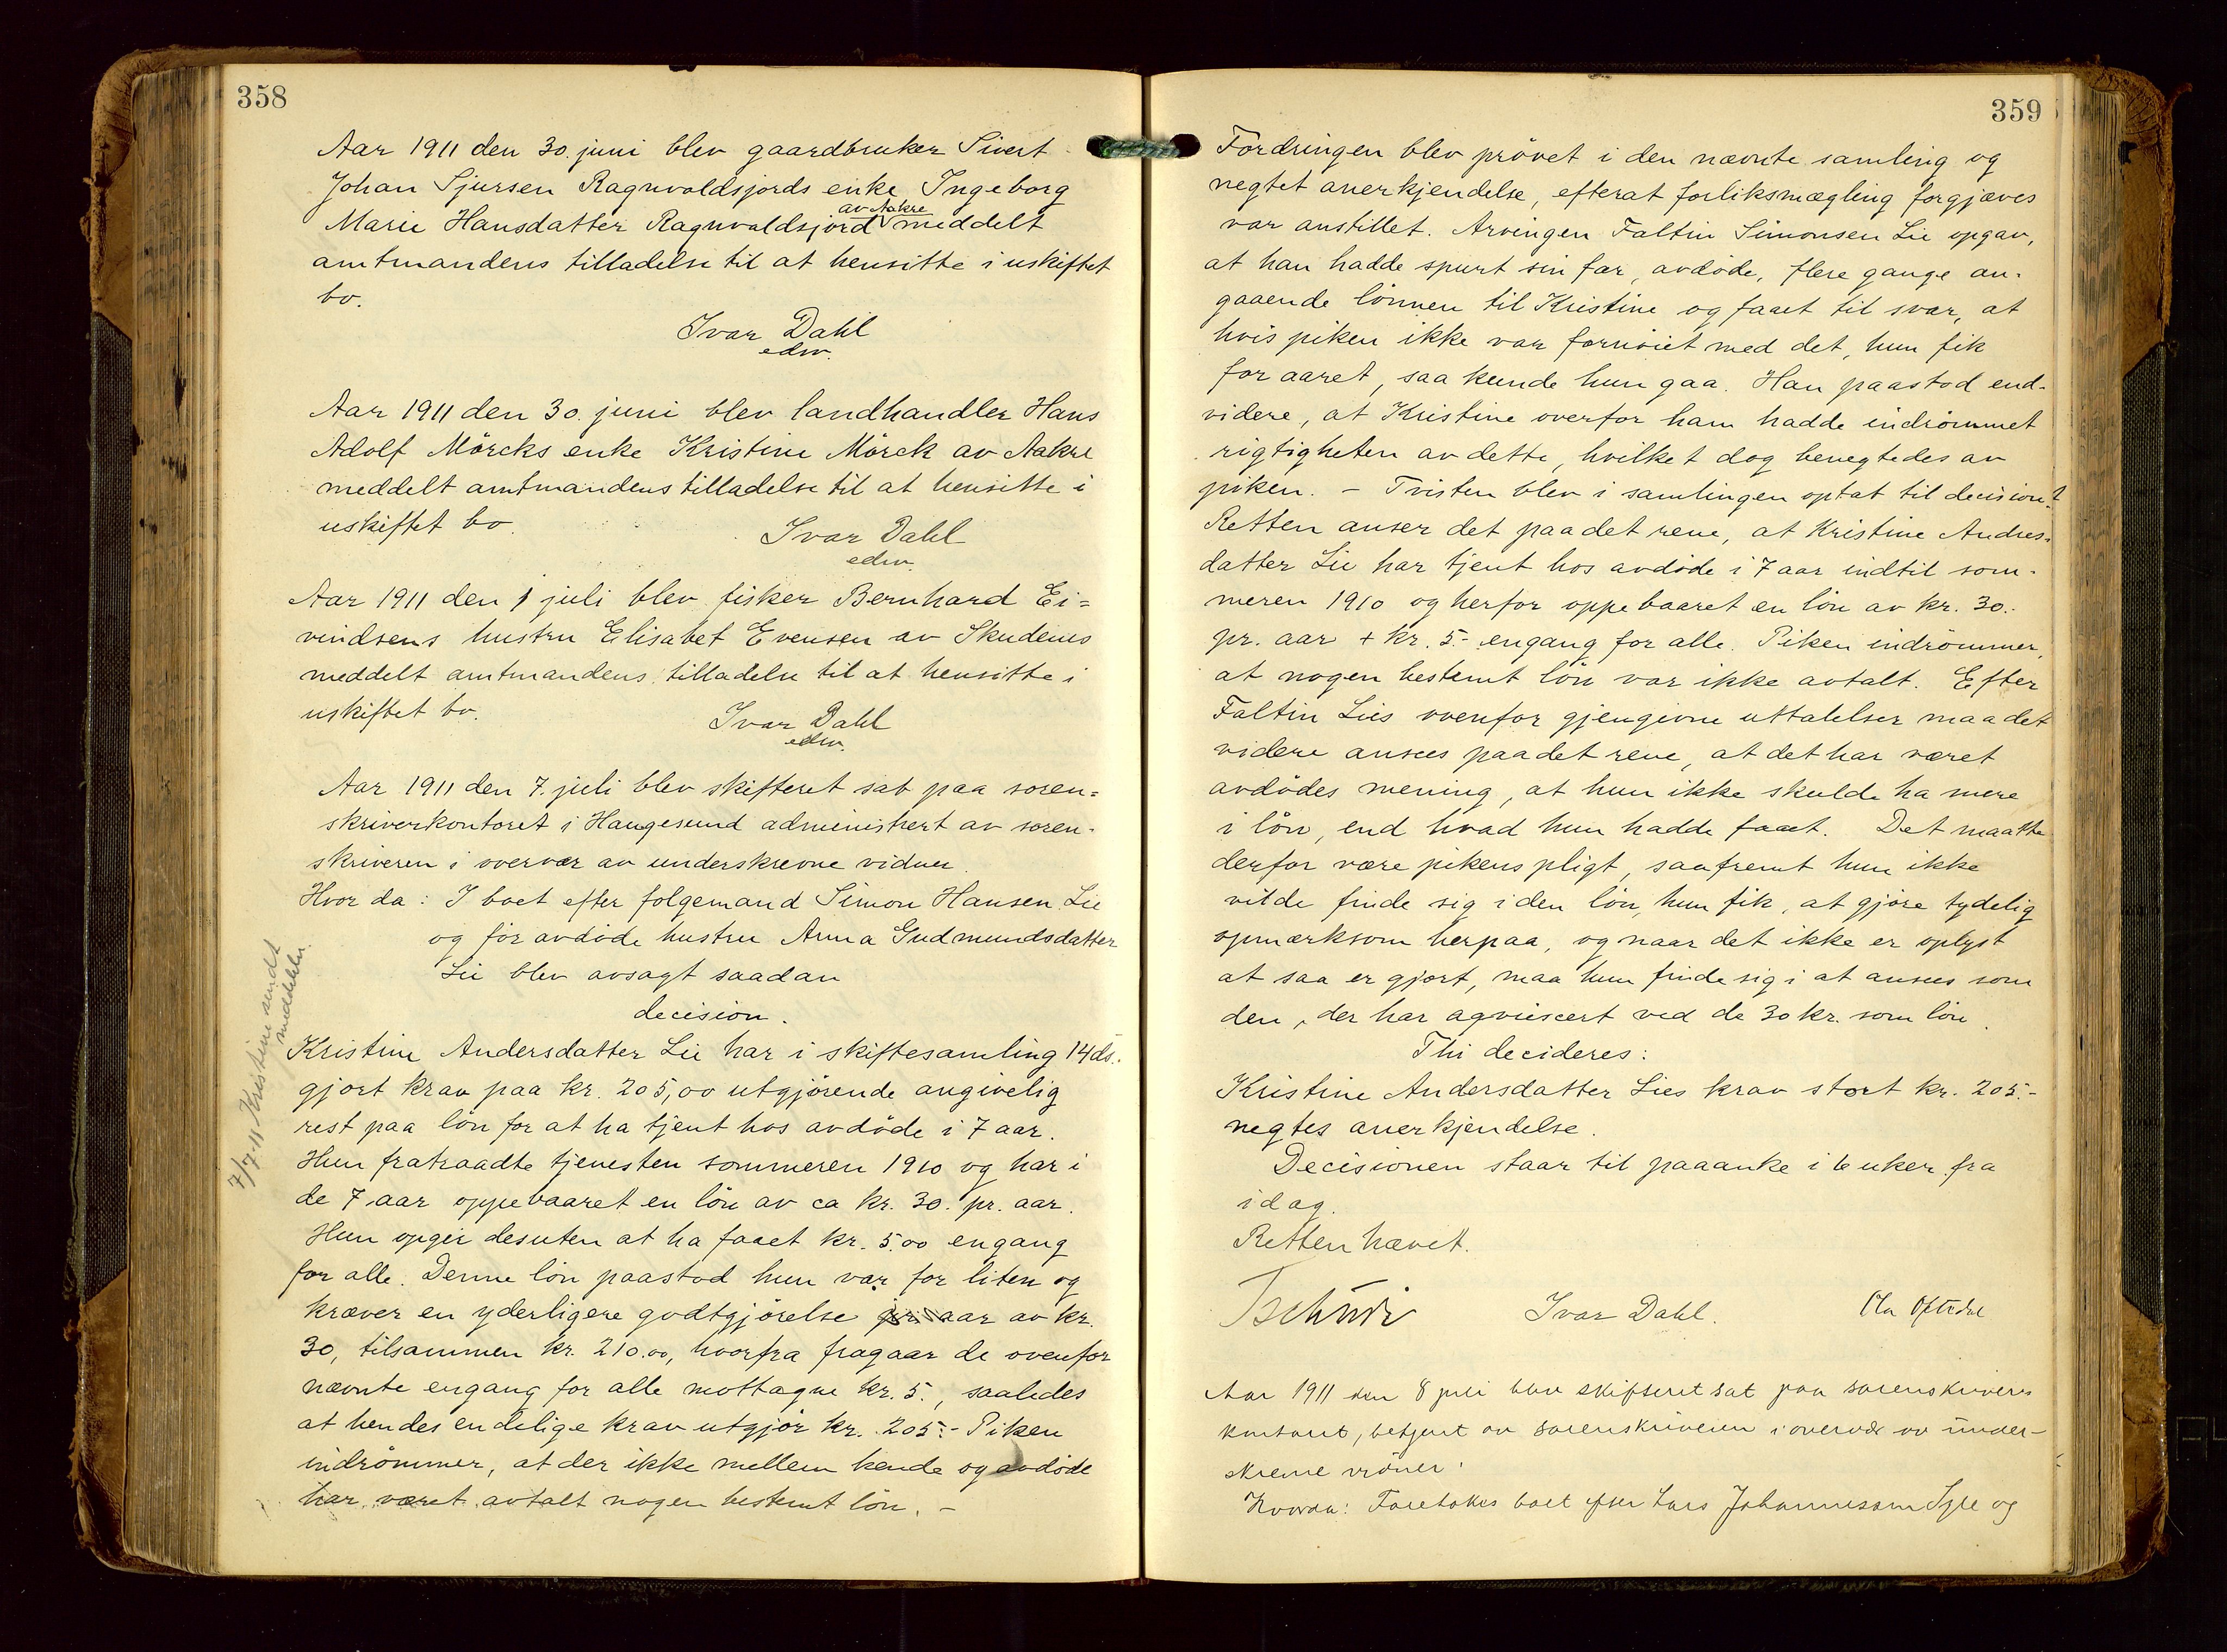 358
Aar 1911 den 30. juni blev gaardbruker Sivert
Johan Sjursen Ragnvaldsjords enke Ingeborg
av Aakre
Marie Hansdatter Ragnvaldsjord meddelt
amtmandens tilladelse til at hensitte i uskiftet
bo.
Ivar Dahl
edsv.
Aar 1911 den 30. juni blev landhandler Hans
Adolf Mörcks enke Kristine Mörck av Aakre
meddelt amtmandens tilladelse til at hensitte i
uskiftet bo.
Ivar Dahl
edsv.
Aar 1911 den 1 juli blev fisker Bernhard Ei=
vindsens hustru Elisabet Evensen av Skudenes
meddelt amtmandens tilladelse til at hensitte i
uskiftet bo.
Ivar Dahl
edsv.
Aar 1911 den 7. juli blev skifteret sat paa soren=
skriverkontoret i Haugesund administrert av soren-
skriveren i overvær av underskrevne vidner.
Hvor da: I boet efter folgemand Simon Hansen Lie
og før avdöde hustru Anna Gudmundsdatter
Lie blev avsagt saadan
decision.
7/7-11 Kristine sendt
meddelelse.
Kristine Andersdatter Lie har i skiftesamling 14 ds.
gjort krav paa kr. 205,00 utgjörende angivelig
rest paa lön for at ha tjent hos avdöde i 7 aar.
Hun fratraadte tjenesten sommeren 1910 og har i
de 7 aar oppebaaret en lön av ca kr. 30. pr. aar.
Hun opgir desuten at ha faaet kr. 5.00 engang
for alle. Denne lön paastod hun var for liten og
kræver en yderligere godtgjörelse pr. aar av kr.
30, tilsammen kr. 210.00, hvorfra fragaar de ovenfor
nævnte engang for alle mottagne kr. 5., saaledes
at hendes endelige krav utgjör kr. 205.- Piken
indrömmer, at der ikke mellem hende og avdöde
har været avtalt nogen bestemt lön. -
359
Fordringen blev prövet i den nævnte samling og
negtet anerkjendelse, efterat forliksmægling forgjæves
var anstillet. Arvingen Faltin Simonsen Lie opgav,
at han hadde spurt sin far, avdöde, flere gange an-
gaaende lönnen til Kristine og faaet til svar, at
hvis piken ikke var fornöiet med det, hun fik
for aaret, saa kunde hun gaa. Han paastod end-
videre, at Kristine overfor ham hadde indrömmet
rigtigheten av dette, hvilket dog benegtedes av
piken. - Tvisten blev i samlingen optat til decision.
Retten anser det paa det rene, at Kristine Anders-
datter Lie har tjent hos avdöde i 7 aar indtil som-
meren 1910 og herfor oppebaaret en lön av kr. 30.-
pr. aar + kr. 5.- engang for alle. Piken indrömmer,
at nogen bestemt lön var ikke avtalt. Efter
Faltin Lies ovenfor gjengivne uttalelser maa det
videre ansees paa det rene, at det har været
avdödes mening, at hun ikke skulde ha mere
i lön, end hvad hun hadde faaet. Det maatte
derfor være pikens pligt, saafremt hun ikke
vilde finde sig i den lön, hun fik, at gjöre tydelig
opmærksom herpaa, og naar det ikke er oplyst
at saa er gjort, maa hun finde sig i at ansees som
den, der har agviescert ved de 30 kr. som lön.
Thi decideres:
Kristine Andersdatter Lies krav stort kr. 205.-
negtes anerkjendelse.
Decisionen staar til paaanke i 6 uker fra
idag.
Retten hævet.
Ivar Dahl.
Aar 1911 den 8 juli blev skifteret sat paa sorenskriver
kontoret, betjent av sorenskriveren i overvær av under-
skrevne vidner.
Hvorda: Foretokes boet efter Lars Johannessen og